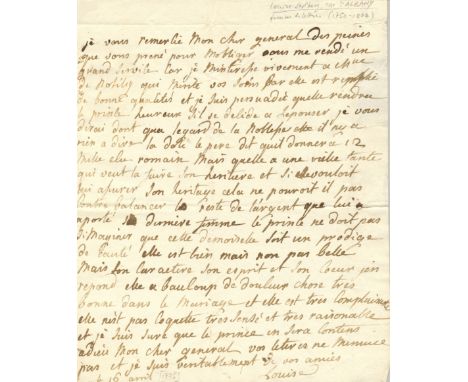 je vous remercié Mon cher general des peines
que vous prené pour vous me rendé un
grand service car je Minteresse vivement a
de qui Merite vos soins par elle est remplie
de bonne qualités et je suis persuadé quelle rendra
le prince heureux s'il se decide a lepouser je vous
dirai dont que legard de la Noblesse elle il n'y a
rien a dire la dote le pere dit quil donnera 12
Mille ecu romain Mais quelle a une vielle tante
qui veut la faire son heritiere et si elle vouloit
lui assurer son heritage cela ne pouroit il pas
contre balancer la perte de l'argent que lui a
aporté sa derniere femme le prince ne doit pas
s'imaginer que cette demoiselle soit un prodige
de beauté elle est bien mais non pas belle
Mais son caractere son esprit et son coeur j'en
repond elle a baucoup de douleur chose très
bonne dans le Mariage et elle est très complaisante
elle n'est pas coquette très sensé et très raisonable
et je suis sure que le prince en sera contens
adieu Mon cher general vos letres ne
pas et je suis veritablement de vos amies
Louise
le 16 avril